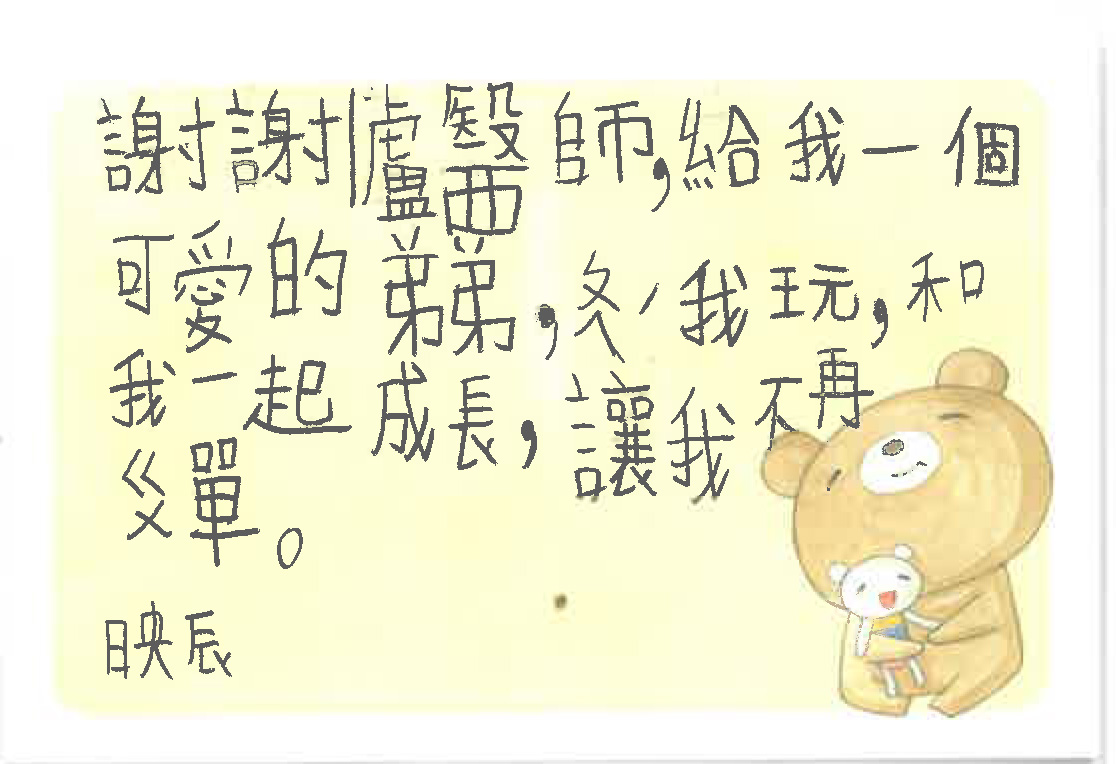 謝謝盧醫師,給我一個
可愛的弟弟,ㄆㄟˊ我玩,和
我一起成長,讓我不再
ㄍㄨ單。
映辰